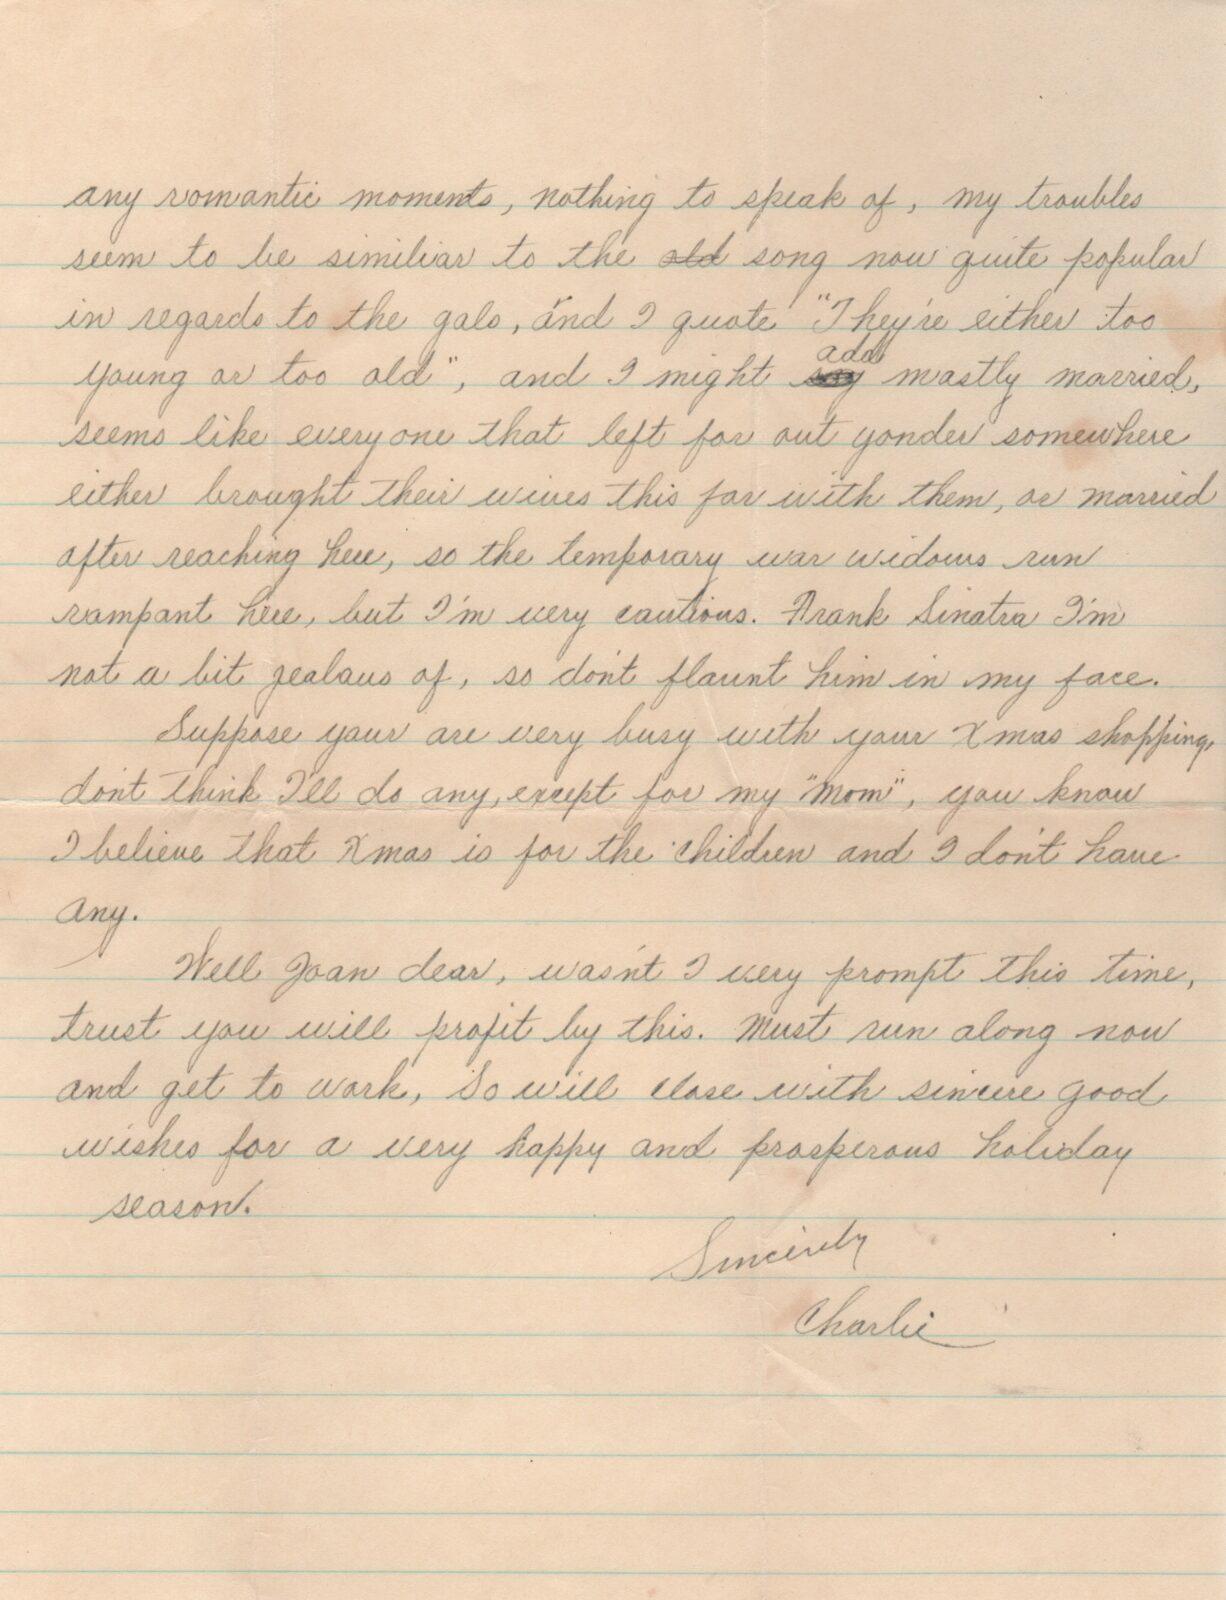 any romantic moments, nothing to speak of, my troubles
seem to be similiar to the old song now quite popular
in regards to the gals, and I quote "They're either too
young or too old", and I might add mostly married,
seems like everyone that left for out yonder somewhere
either brought their wives this far with them, or married
after reaching here, so the temporary war widows run
rampant here, but I'm very cautious. Frank Sinatra I'm
not a bit jealous of, so don't flaunt him in my face.
Suppose your are very busy with your Xmas shopping,
don't think I'll do any, except for my "Mom", you know
I believe that Xmas is for the children and I don't have
any.
Well Joan dear, wasn't I very prompt this time,
trust you will profit by this. Must run along now
and get to work, So will close with sincere good
wishes for a very happy and prosperous holiday
season.
Sincerely
Charlie